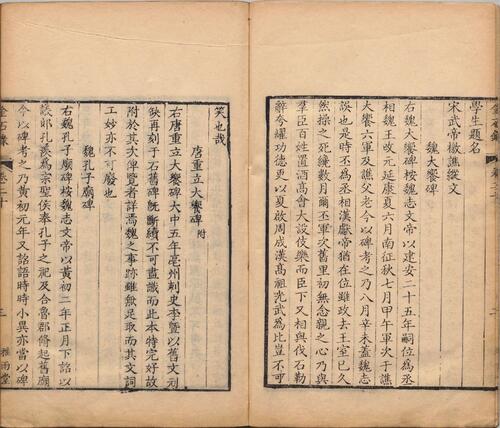 學生題名
宋武帝檄譙縱文
魏大饗碑
右魏大饗碑桉魏志文帝以建安二十五年嗣位為丞
相魏王改元延康夏六月南征秋七月甲午軍次于譙
大饗六軍及譙父老今以碑考之乃八月辛未蓋魏志
誤也是時丕為丞相漢獻帝猶在位雖政去王室已久
然操之死纔數月爾丕軍次舊里初無念親之心乃與
羣臣百姓置酒高會大設伎樂而臣下又相與伐石勒
辭夸耀功德更以夏啟周成漢高祖光武為比豈不可
笑也哉
唐重立大饗碑 附
右唐重立大饗碑大中五年亳州刺史李暨以舊文刓
缺再刻于石舊碑既斷續不可盡識而此本特完好故
附於其次俾覽者詳焉魏之事跡雖無足取而其文詞
工妙亦不可廢也
魏孔子廟碑
右魏孔子廟碑桉魏志文帝以黃初二年正月下詔以
議郎孔羨為宗聖侯奉孔子之祀及令魯郡脩起舊廟
今以碑考之乃黃初元年又詔語時時小異亦當以碑
金石錄
卷二十
三
雅雨堂